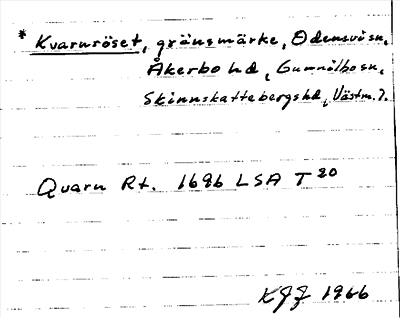 * Kvarnröset, gränsmärke, Odensvi sn,
Åkerbo hd, Gunnilbo sn,
Skinnskattebergs hd, Västm.?.
Qvarn Rt. 1696 LSA T 20
KJJ 1966